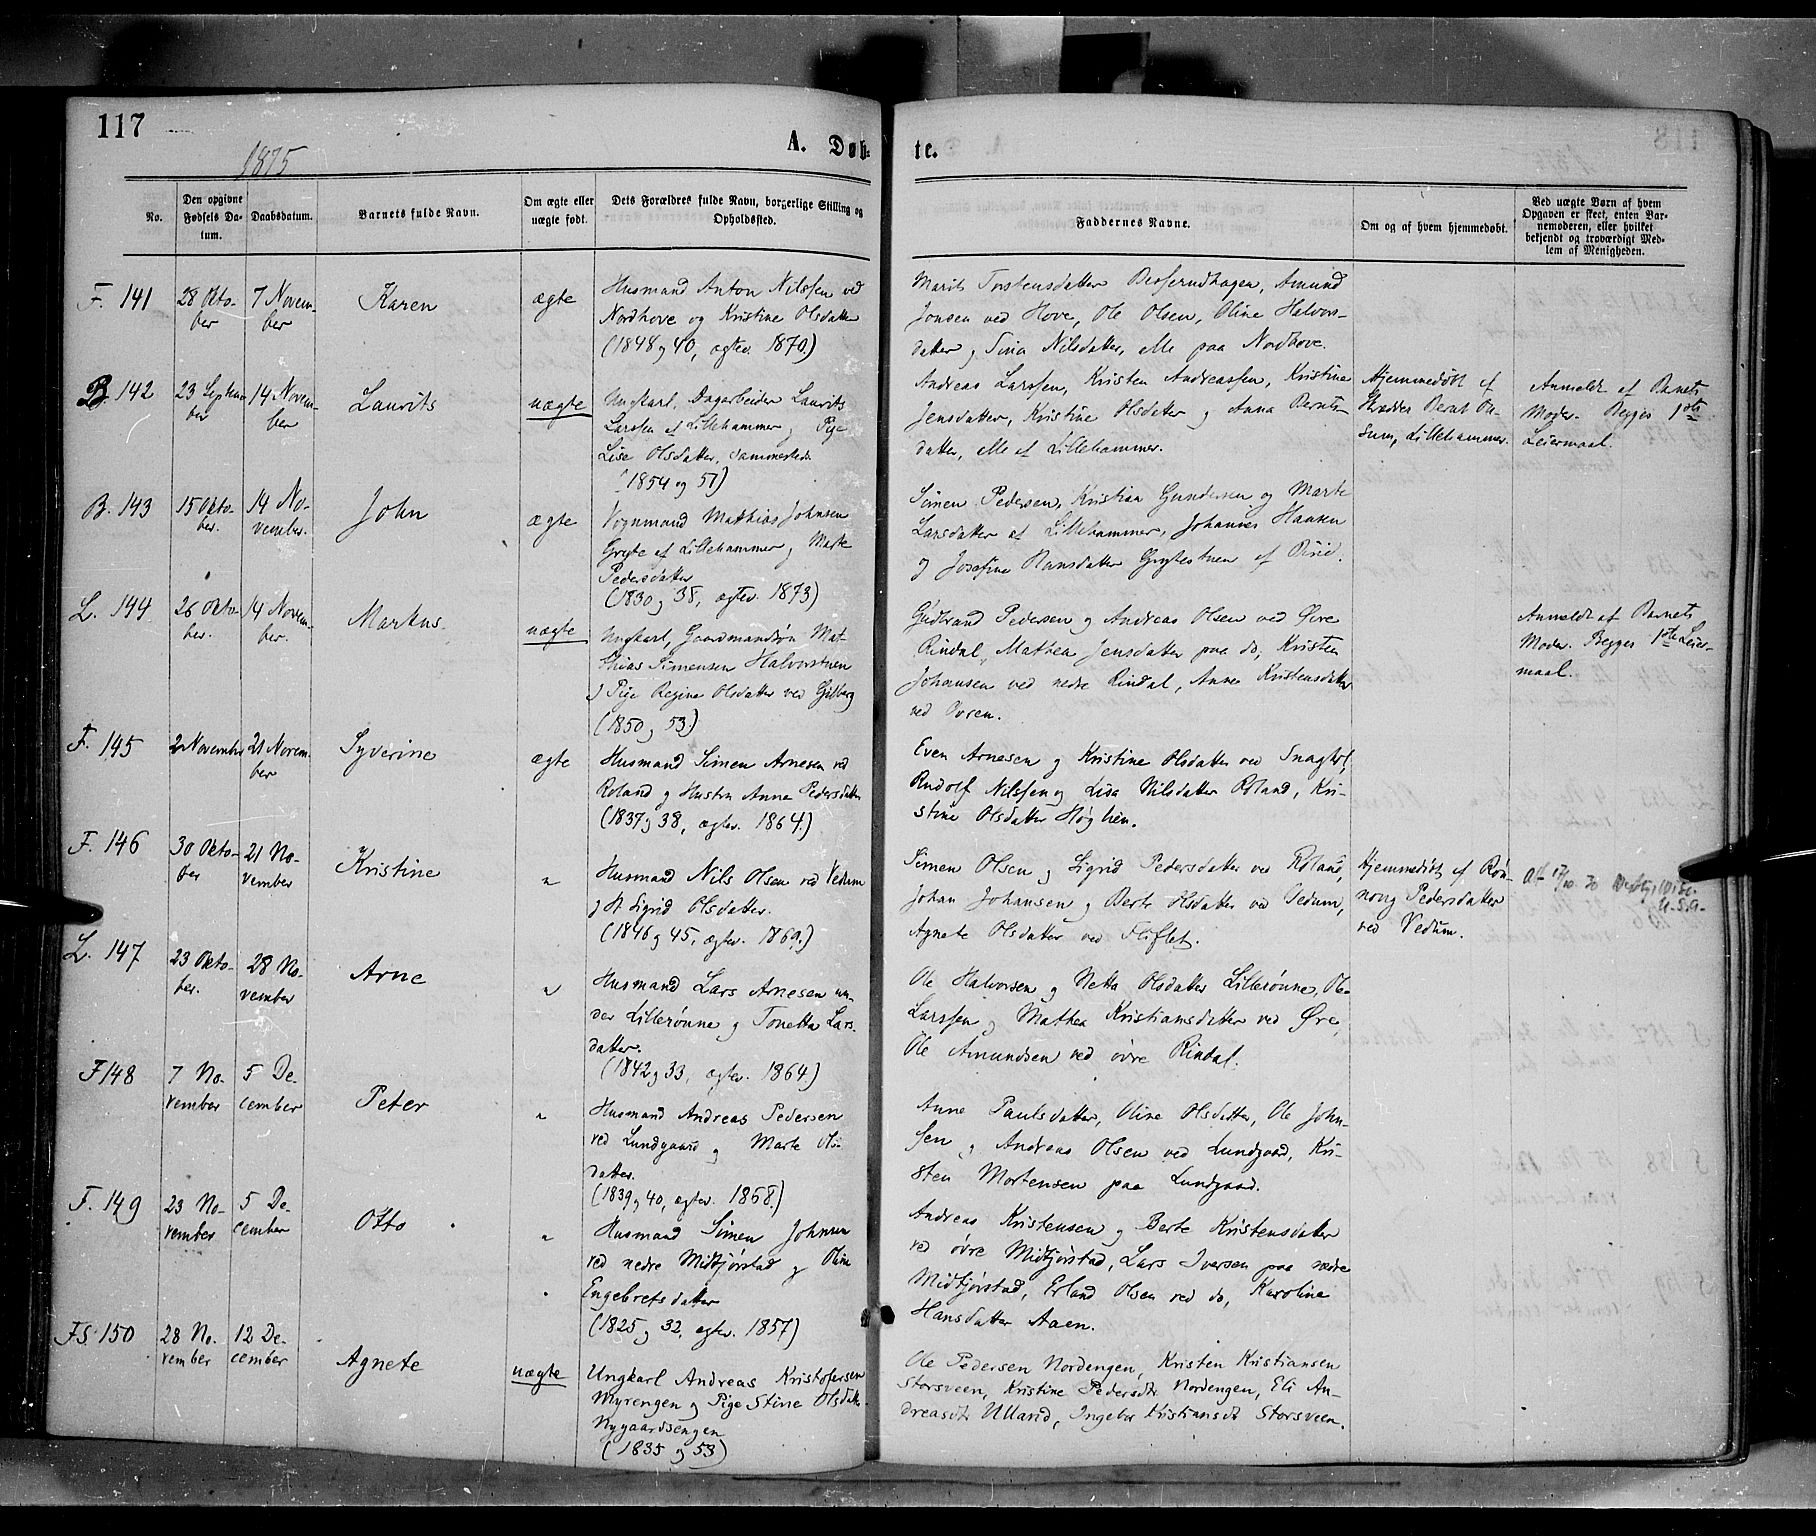 117
1875
A. Døb-
te.
No.
Den opgivne
Fødsels Da-
tum.
Daabsdatum.
Barnets fulde Navn.
Om ægte eller
uægte født.
Dets Forældres fulde Navn, borgerlige Stilling og
Opholdssted.
Faddernes Navne.
Om og af hvem hjemmedøbt.
Ved uægte Børn af hvem
Opgaven er skeet, enten Bar-
nemoderen, eller hvilket
bekjendt og troværdigt Med-
lem af Menigheden.
F. 141
28 Okto-
ber
7 Novem-
ber
Karen
ægte
Husmand Anton Nilssen ved
Nordhove og Kristine Olsdatter
(1848 og 40, ægtev. 1870.)
Marit Torstensdatter Besserudhagen, Amund
Jonsen ved Hove, Ole Olsen, Oline Halvors-
datter og Tina Nilsdatter, alle paa Nordhove.
B. 142
23 Septem-
ber
14 Novem-
ber
Laurits
uægte
Ungkarl, Dagarbeider Laurits
Larssen af Lillehammer og Pige
Lise Olsdatter, sammesteds.
(1854 og 51)
Andreas Larssen, Kristen Andreassen, Kristine
Jensdatter, Kristine Olsdatter og Anna Bernts-
datter, alle af Lillehammer.
Hjemmedøbt af
Skrædder Bernt
Lillehammer.
Anmeldt af Barnets
Moder. Begges 1ste
Leiermaal.
B. 143
15 Okto-
ber.
14 No-
vember.
John
ægte
Vognmand Mathias Johnsen
Gryte af Lillehammer og Marte
Pedersdatter
(1830 og 38, ægtev. 1873)
Simen Pedersen, Kristian Gundersen og Marte
Larsdatter af Lillehammer, Johannes Hansen
og Josefine Hansdatter Grytestuen af Birid.
L. 144
26 Okto-
ber.
14 Novem-
ber.
Markus
uægte
Ungkarl, Gaardmandsøn Mat-
thias Simensen Halvorstuen
og Pige Regine Olsdatter ved Gilberg
(1850 og 53.)
Gudbrand Pedersen og Andreas Olsen ved Øvre
Rindal, Mathea Jensdatter paa do, Kristen
Johansen ved nedre Rindal, Anne Kristensdatter
ved
Anmeldt af Barnets
Moder. Begges 1ste Leier-
maal.
F. 145
2 November
21 Novem-
ber
Syverine
ægte
Husmand Simen Arnesen ved
Roland og Hustru Anne Pedersdatter
(1837 og 38, ægtev. 1864.)
Even Arnesen og Kristine Olsdatter ved
Rudolf Nilssen og Lisa Nilsdatter Roland, Kri-
stine Olsdatter Høglien.
F. 146
30 Okto-
ber
21 No-
vember
Kristine
"
Husmand Nils Olsen ved Vedum
og H. Sigrid Olsdatter.
(1846 og 45, ægtev. 1869.)
Simen Olsen og Sigrid Pedersdatter ved Roland,
Johan Johansen og Berte Olsdatter ved Vedum,
Agnete Olsdatter ved Fliflet.
Hjemmedøbt af Røn-
naug Pedersdatter
ved Vedum.
U.S.A.
L. 147
23 Okto-
ber.
28 No-
vember
Arne
"
Husmand Lars Arnesen un-
der Lillerønne og Tonetta Lars-
datter.
(1842 og 33, ægtev. 1864.)
Ole Halvorsen og Netta Olsdatter Lillerønne, Ole
Larssen og Mathea Kristiansdatter ved Øvre,
Ole Amundsen ved øvre Rindal.
F 148
7 No-
vember
5 De-
cember
Peter
"
Husmand Andreas Pedersen
ved Lundgaard og Marte Ols-
datter.
(1839 og 40, ægtev. 1868.)
Anne Paulsdatter, Oline Olsdatter, Ole John-
sen og Andreas Olsen ved Lundgaard, Kri-
sten Mortensen paa Lundgaard.
F. 149
23 No-
vember
5 De-
cember
Otto
"
Husmand Simen Johnsen
ved nedre Midtjørstad og Oline
Engebretsdatter
(1825 og 32, ægtev. 1857)
Andreas Kristensen og Berte Kristensdatter
ved øvre Midtjørstad, Lars Iversen paa nedre
Midtjørstad, Erland Olsen ved do, Karoline
Hansdatter Aaen.
FS. 150
28 No-
vember
12 De-
cember
Agnete
uægte
Ungkarl Andreas Kristofersen
Myrengen og Pige Stine Olsdatter
Nygaardsengen
(1835 og 53)
Ole Pedersen Nordengen, Kristen Kristiansen
Storsveen, Kristine Pedersdt Nordengen, Eli An-
dreasdt Ulland, Ingebor Kristiansdt Storsveen.